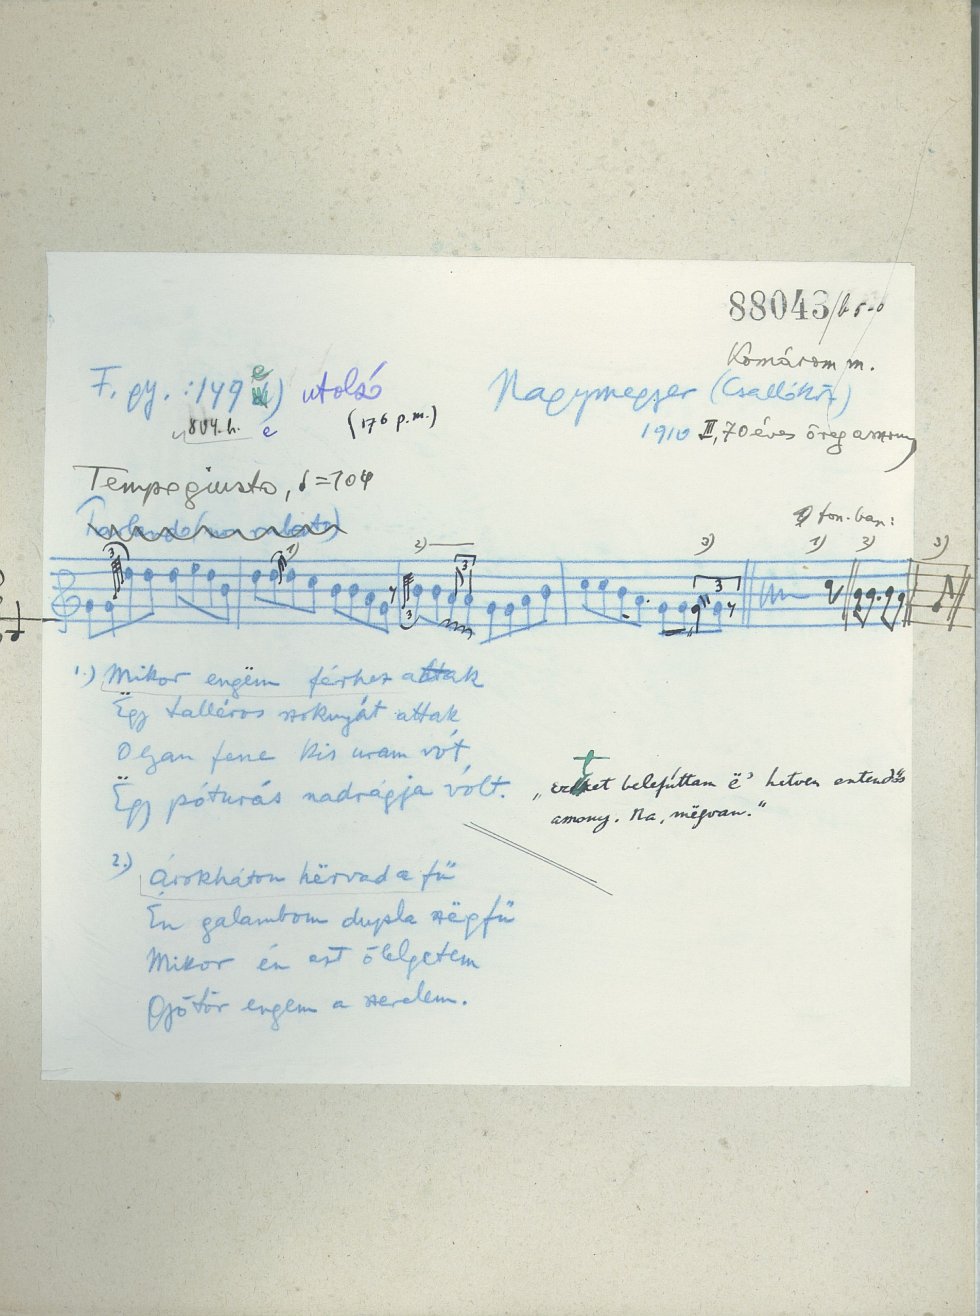 88043/b 5-0
Komárom m.
F. gy. : 149 e) utolsó
Nagymegyer (Csallóköz)
804. h. é
(176 p.m.)
1910 III, 70 éves öreg asszony
Tempo giusto, = 104
fon.-ban:
3 1) 2) 3 3 3) 3 1) 2) 3)
1.) Mikor engëm férhez attak
Ëgy talléros szoknyát attak
Olyan fene kis uram vót,
Ëgy póturás nadrágja vólt.
„ezeket belefúttam ë' hetven esztendős
asszony. Na, mëgvan."
2.) Árokháton hërvad a fű
Én galambom dupla szëgfű
Mikor én ezt ölelgetem
Gyötör engem a szerelem.